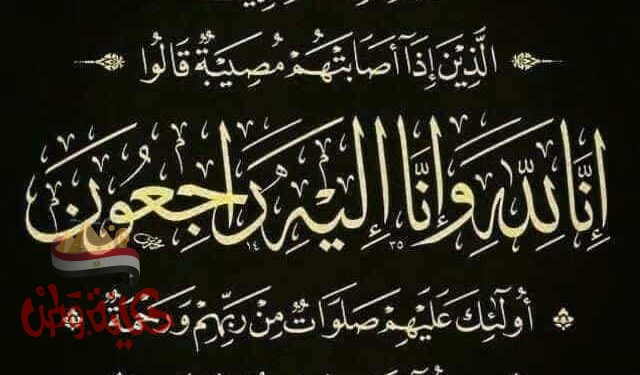 الَّذِينَ إِذَا أَصَابَتْهُمْ مُصِيبَةٌ قَالُوا
إِنَّا لِلَّهِ وَإِنَّا إِلَيْهِ رَاجِعُونَ
١٤ ٣٥
أُولَٰئِكَ عَلَيْهِمْ صَلَوَاتٌ مِنْ رَبِّهِمْ وَرَحْمَةٌ
حكاية وطن